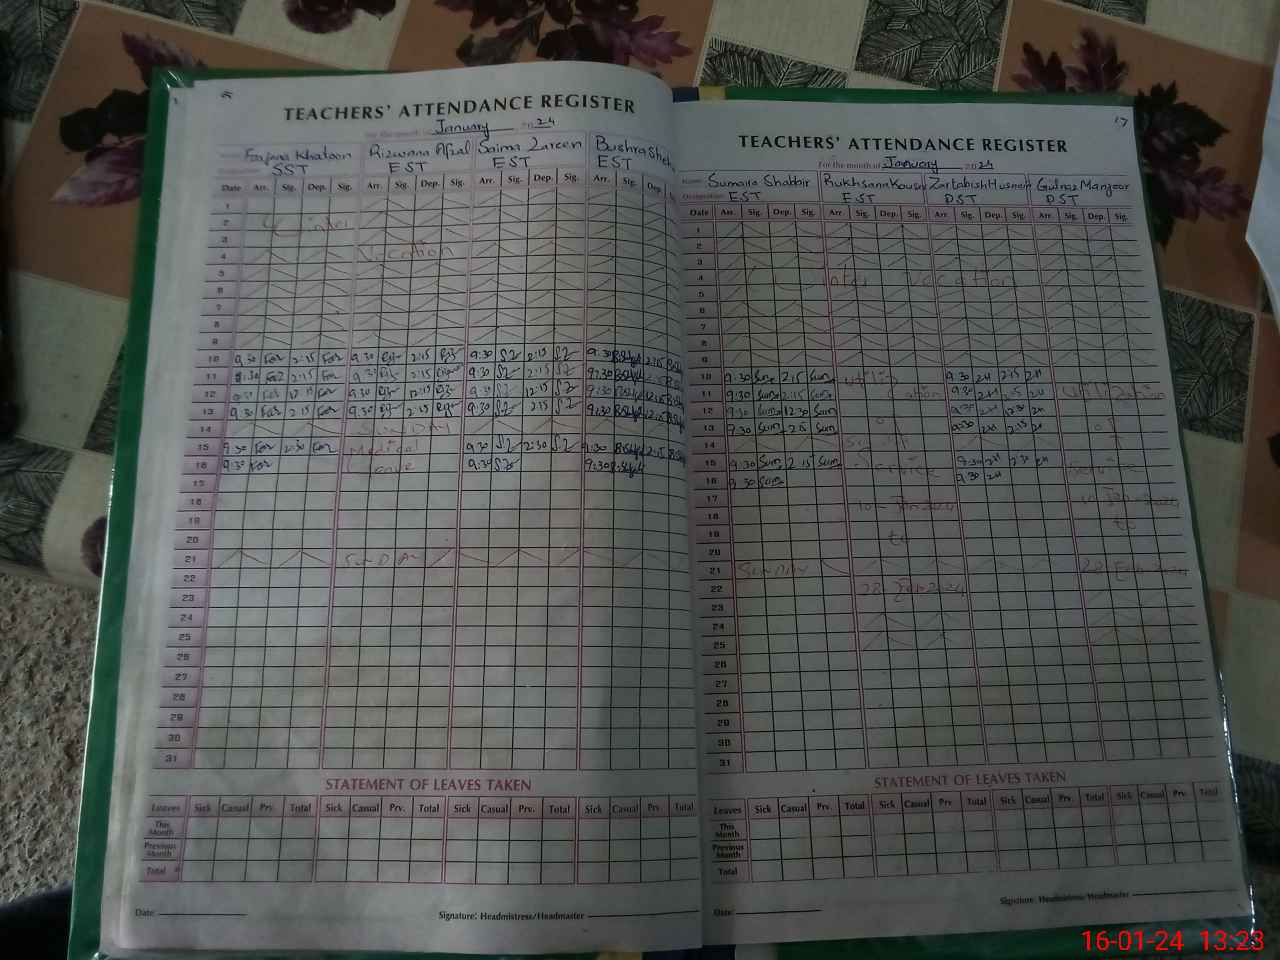 TEACHERS' ATTENDANCE REGISTER
For the month of January 2024
Farjana Khatoon Rizwana Afzal Saima Zareen Bushra
SST EST EST EST
Date Arr. Sig. Dep. Sig. Arr. Sig. Dep. Sig. Arr. Sig. Dep. Sig. Arr. Sig. Dep.
1
2 Winter
3
4 Vacation
5
6
7
8
9
10 9:30 Far 2:15 Far 9:30 2:15 9:30 SZ 2:15 SZ 9:30 2:15
11 9:30 Far 2:15 Far 9:30 2:15 9:30 SZ 2:15 SZ 9:30
12 9:30 Far 12:15 Far 9:30 12:15 9:30 SZ 12:15 SZ 9:30 12:15
13 9:30 Far 2:15 Far 9:30 2:15 9:30 SZ 2:15 SZ 9:30 2:15
14 SunDay
15 9:30 Far 2:30 Far Medical 9:30 SZ 2:30 SZ 9:30 2:15
16 9:30 Far Leave 9:30 SZ 9:30
17
18
19
20
21 SunDAy
22
23
24
25
26
27
28
29
30
31
STATEMENT OF LEAVES TAKEN
Leaves Sick Casual Prv. Total Sick Casual Prv. Total Sick Casual Prv. Total Sick Casual Prv. Total
This Month
Previous Month
Total
Date: Signature: Headmistress/Headmaster
17
TEACHERS' ATTENDANCE REGISTER
For the month of January 2024
Name Sumaira Shabbir Rukhsana Kousar Zartabish Husnain Gulnaz Manzoor
Designation EST EST PST PST
Date Arr. Sig. Dep. Sig. Arr. Sig. Dep. Sig. Arr. Sig. Dep. Sig. Arr. Sig. Dep. Sig.
1
2
3
4 Winter Vacation
5
6
7
8
9
10 9:30 Sum 2:15 Sum utiliz 9:30 ZH 2:15 ZH
11 9:30 Sum 2:15 Sum ation 9:30 ZH 2:15 ZH utilization
12 9:30 Sum 12:30 Sum 9:30 ZH 12:30 ZH
13 9:30 Sum 2:15 Sum of 9:30 ZH 2:15 ZH of
14
15 9:30 Sum 2:15 Sum Service 9:30 ZH 2:30 ZH Service
16 9:30 Sum 9:30 ZH
17 10-Jan 2024
18
19 to to
20
21 SunDAY 28 Feb 2024
22 28 Feb 2024
23
24
25
26
27
28
29
30
31
STATEMENT OF LEAVES TAKEN
Leaves Sick Casual Prv. Total Sick Casual Prv. Total Sick Casual Prv. Total Sick Casual Prv. Total
This Month
Previous Month
Total
Date: Signature: Headmistress/Headmaster
16-01-24 13:23